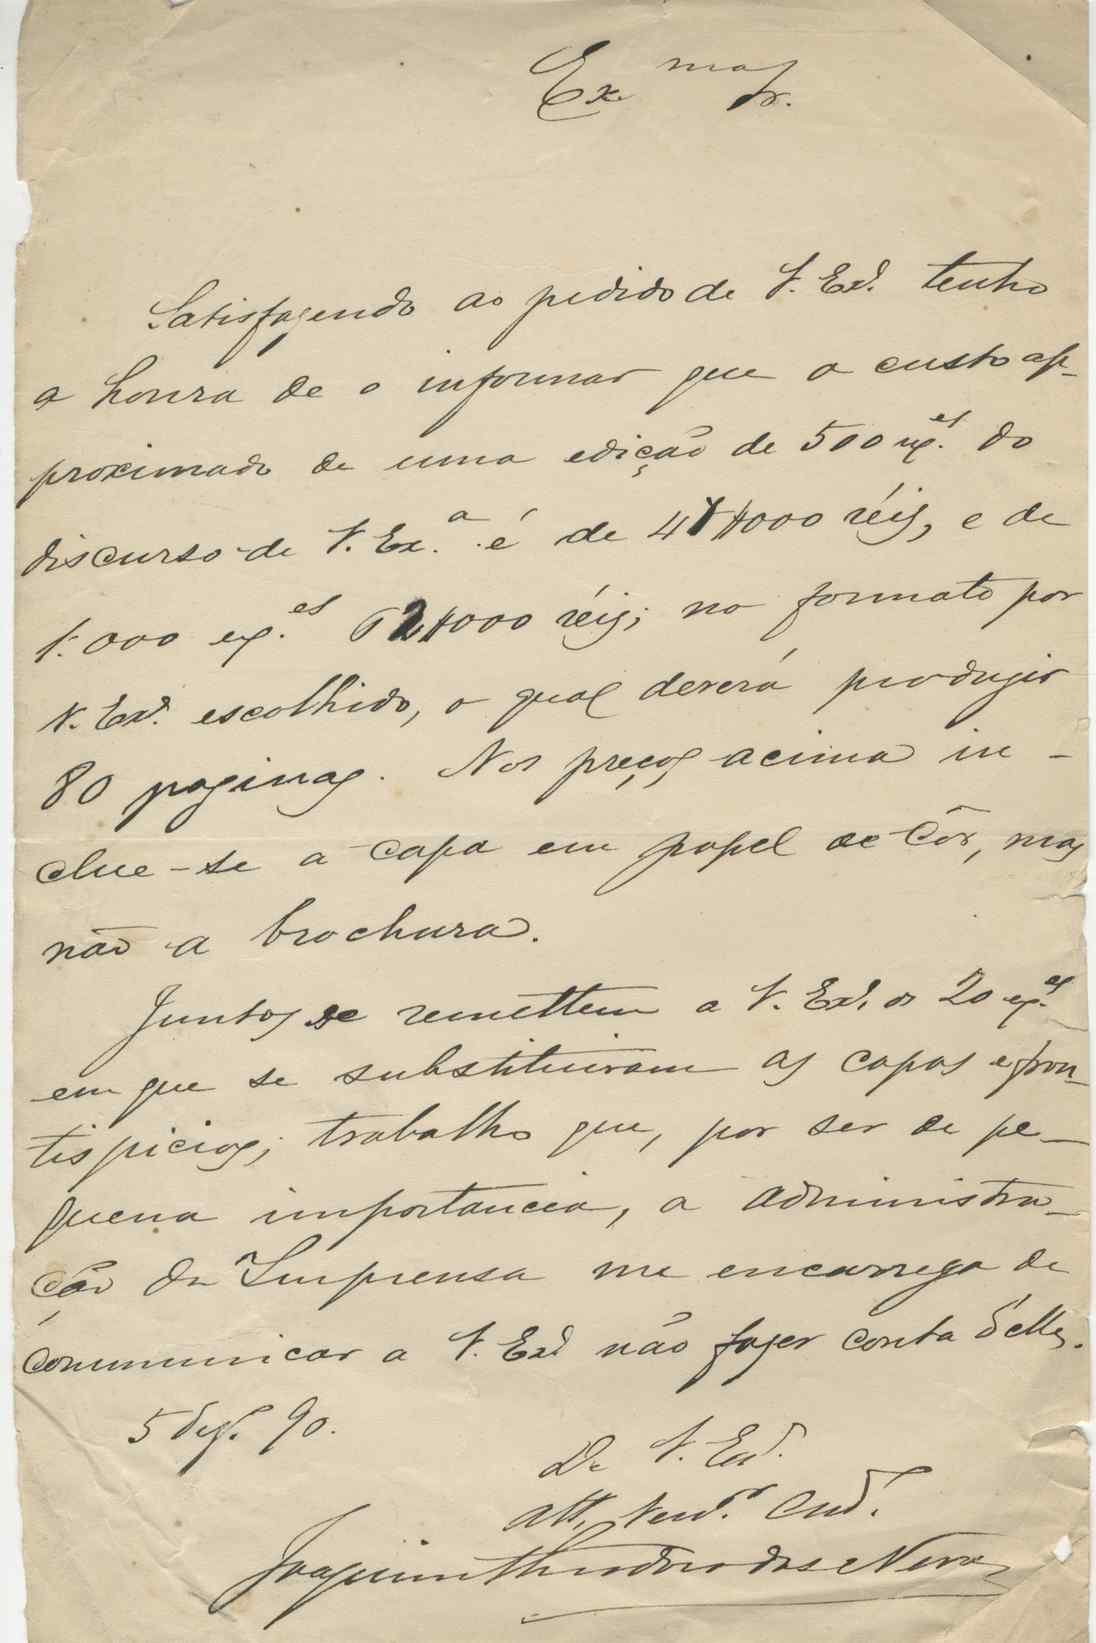 Ex.mo Sr.
Satisfazendo ao pedido de V. Exª. tenho
a honra de o informar que o custo ap-
proximado de uma edição de 500 ex.es do
discurso de V. Ex.a é de 4 $000 réis, e de
1:000 ex.es 62$000 réis; no formato por
V. Exª. escolhido, o qual deverá produzir
80 paginas. Nos preços acima in-
clue-se a capa em papel de côr, mas
não a brochura.
Juntos se remettem a V. Exª. os 20 ex.es
em que se substituiram as capas e fron-
tispicios; trabalho que, por ser de pe-
quena importancia, a administra-
ção da Imprensa me encarrega de
communicar a V. Exª não fazer conta d'elles.
5 dez. 90.
De V. Exª.
Att. Vend.or Cred.
Joaquim Theodoro das Neves